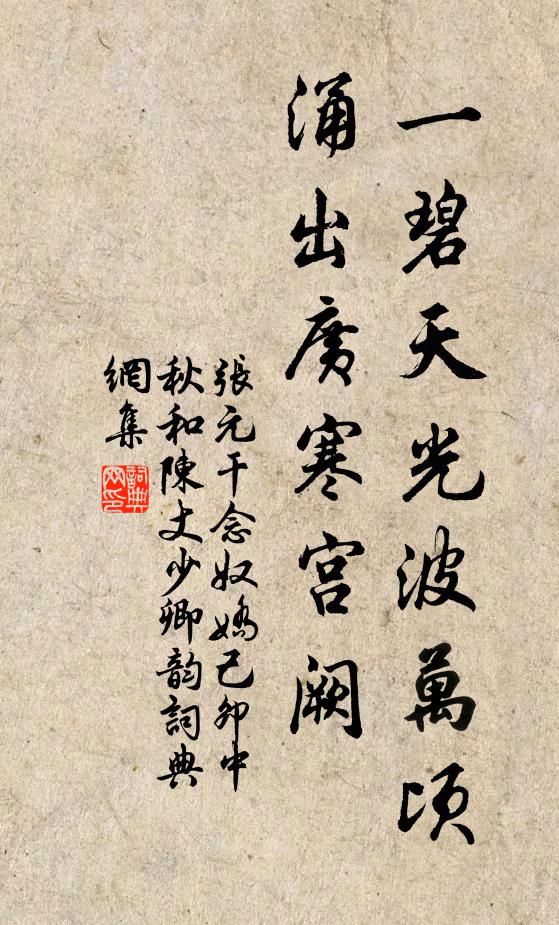 一碧天光波萬頃
涌出廣寒宮闕
張元干念奴嬌己卯中
秋和陳丈少卿韵詞典
網集
詞典
网印